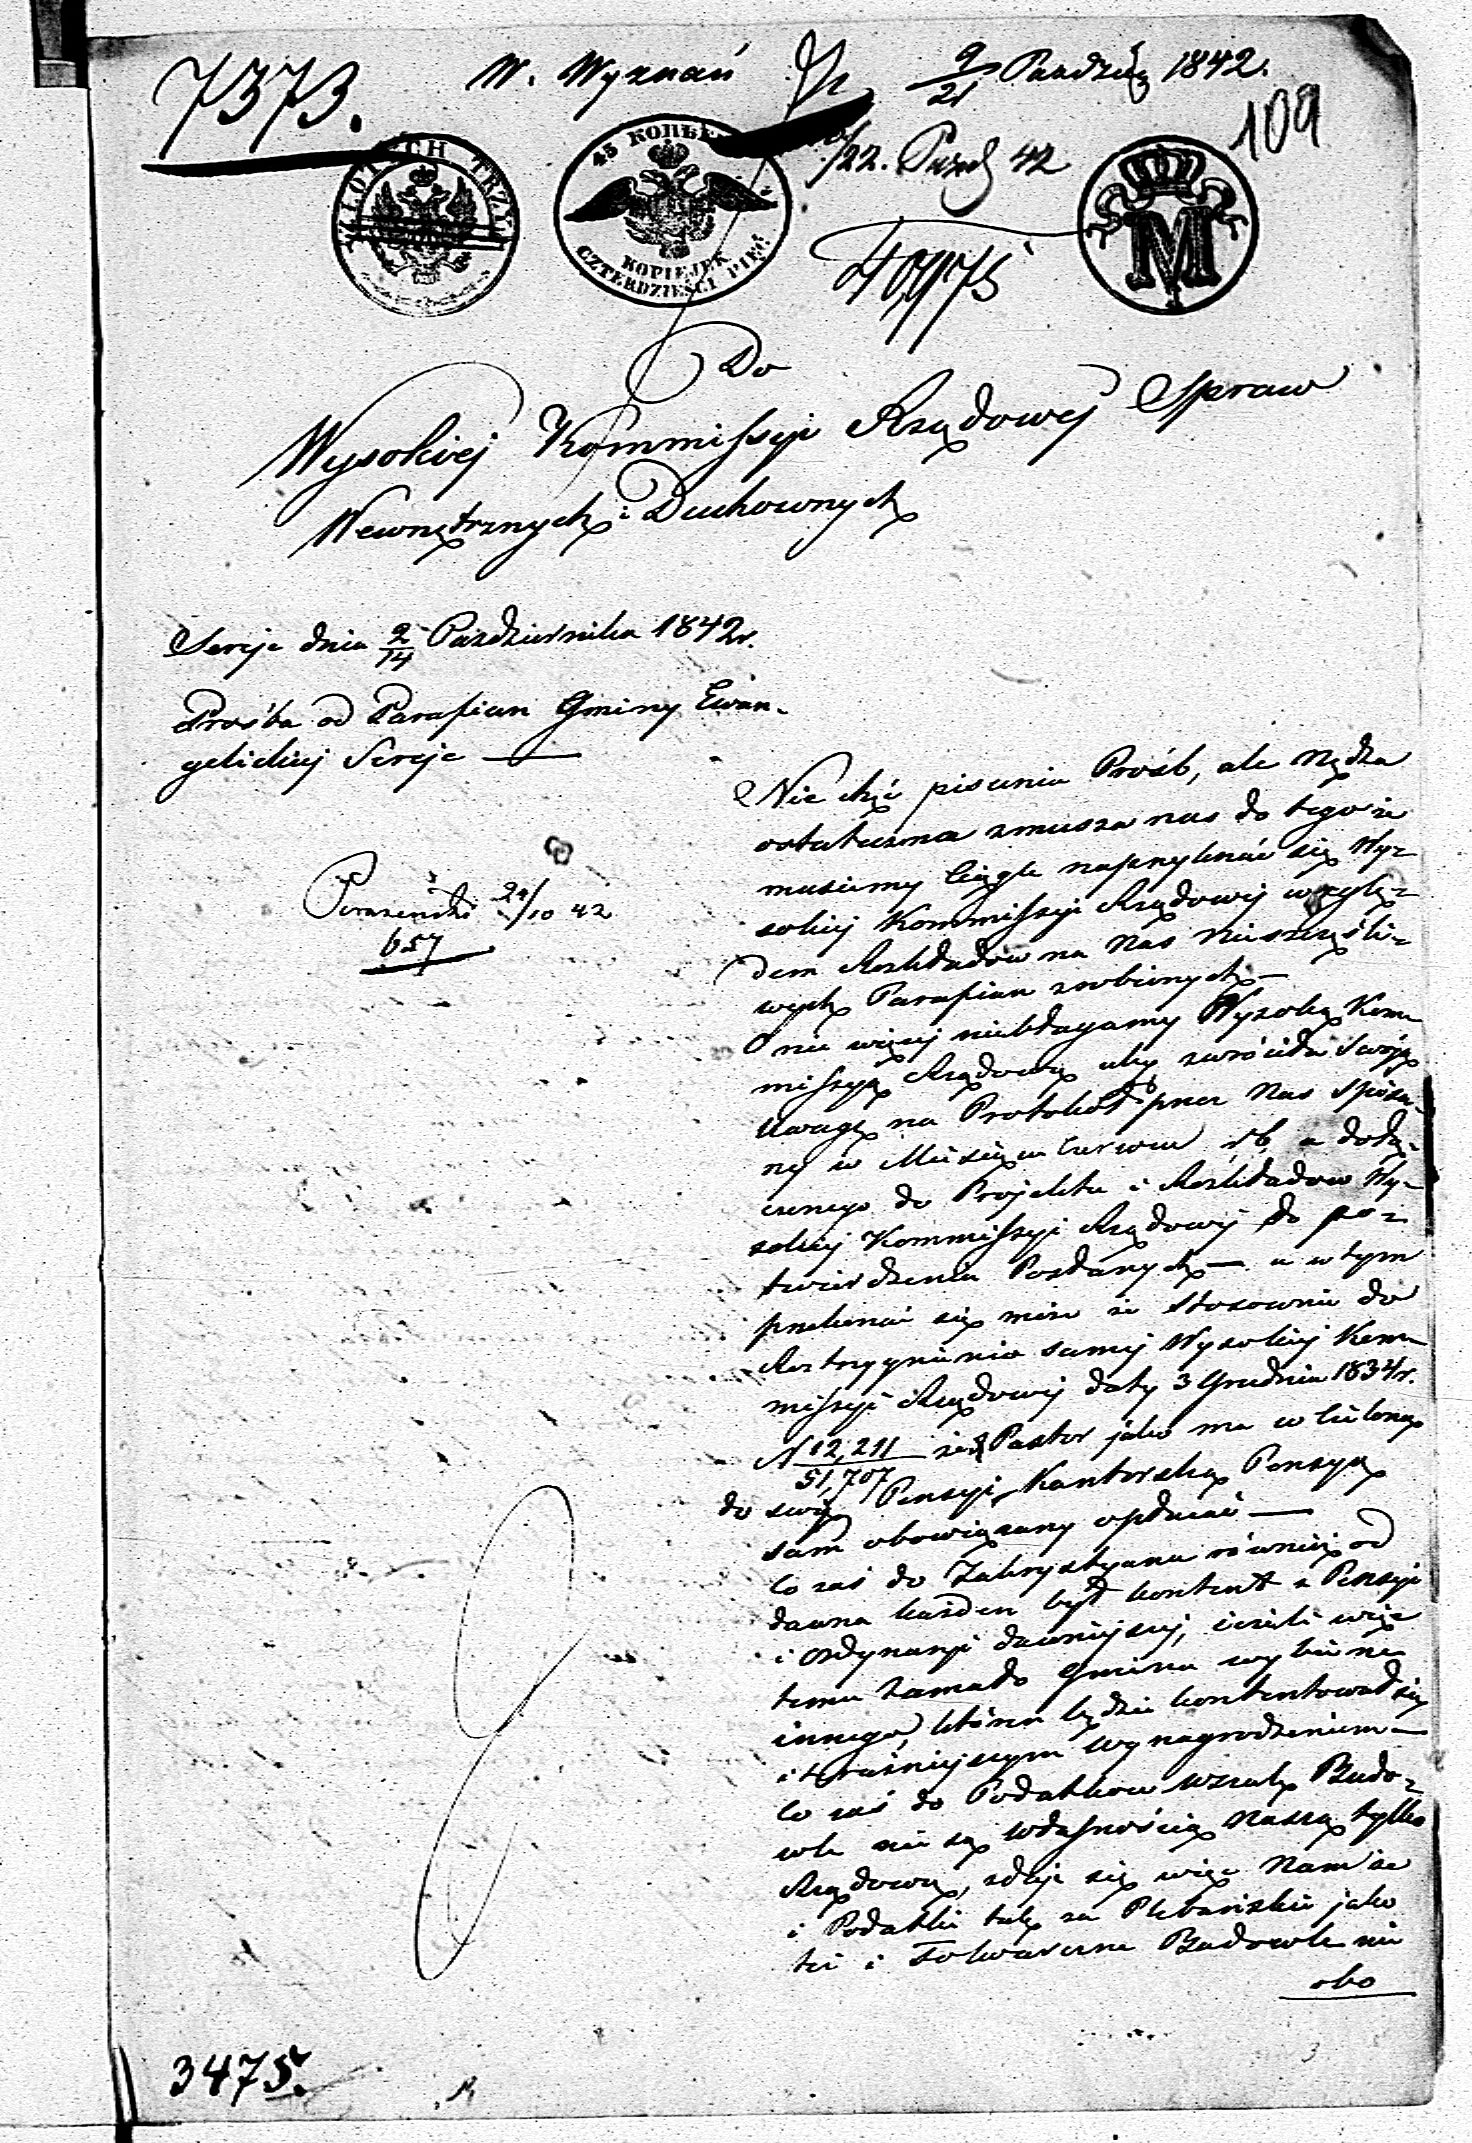 7373.
W. Wyznań
9/21 Paździer 1842.
109
/22. Paźd 42
ZŁOTYCH TRZY
45 КОПѢЕКЪ
KOPIEJEK
CZTERDZIEŚCI PIĘĆ
M
Do
Wysokiej Kommissyi Rządowej Spraw
Wewnętrznych i Duchownych
Sereje dnia 2/14 Października 1842 r.
Prośba od Parafian Gminy Ewan-
gelickiej Sereje
24/10 42
657
Nie chęć pisania Prośb, ale Nędza
ostateczna zmusza nas do tego że
musiemy ciągle naprzykrzać się Wy-
sokiej Kommissyi Rządowej wzglę-
dem Rozkładów na Nas nieszczęśli-
wych Parafian zrobionych
O nic więcej niebłagamy Wysoką Kom-
missyą Rządową aby zwróciła Swoję
Uwagę na Protokół przez Nas spisa-
ny w Miesiącu Czerwcu r b, a dołą-
czonego do Projektu i Rozkładów Wy-
sokiej Kommissyi Rządowej do po-
twierdzenia Posłanych — a w tym
przekonać się może że stosownie do
Rostrzygnienia samej Wysokiej Kom-
missyi Rządowej daty 3 Grudnia 1834 r.
N 12,211/51,707 że Pastor jako ma wcieloną
do swej Pensyi Kantorską Pensyą
sam obowiązany opłacać —
Co zaś do Zakrystyana również od
dawna każden był kontent z Pensyi
i Ordynaryi dawniejszej, jeżeli więc
temu zamało Gmina wybierze
innego, któren będzie kontentował się
i teraźniejszym wynagrodzeniem —
Co zaś do Podatków wszak Budo-
wle nie są własnością Naszą tylko
Rządową, zdaje się więc Nam że
i Podatki tak za Plebańskie jako
też i Folwarczne Budowle nie
obo
3475.